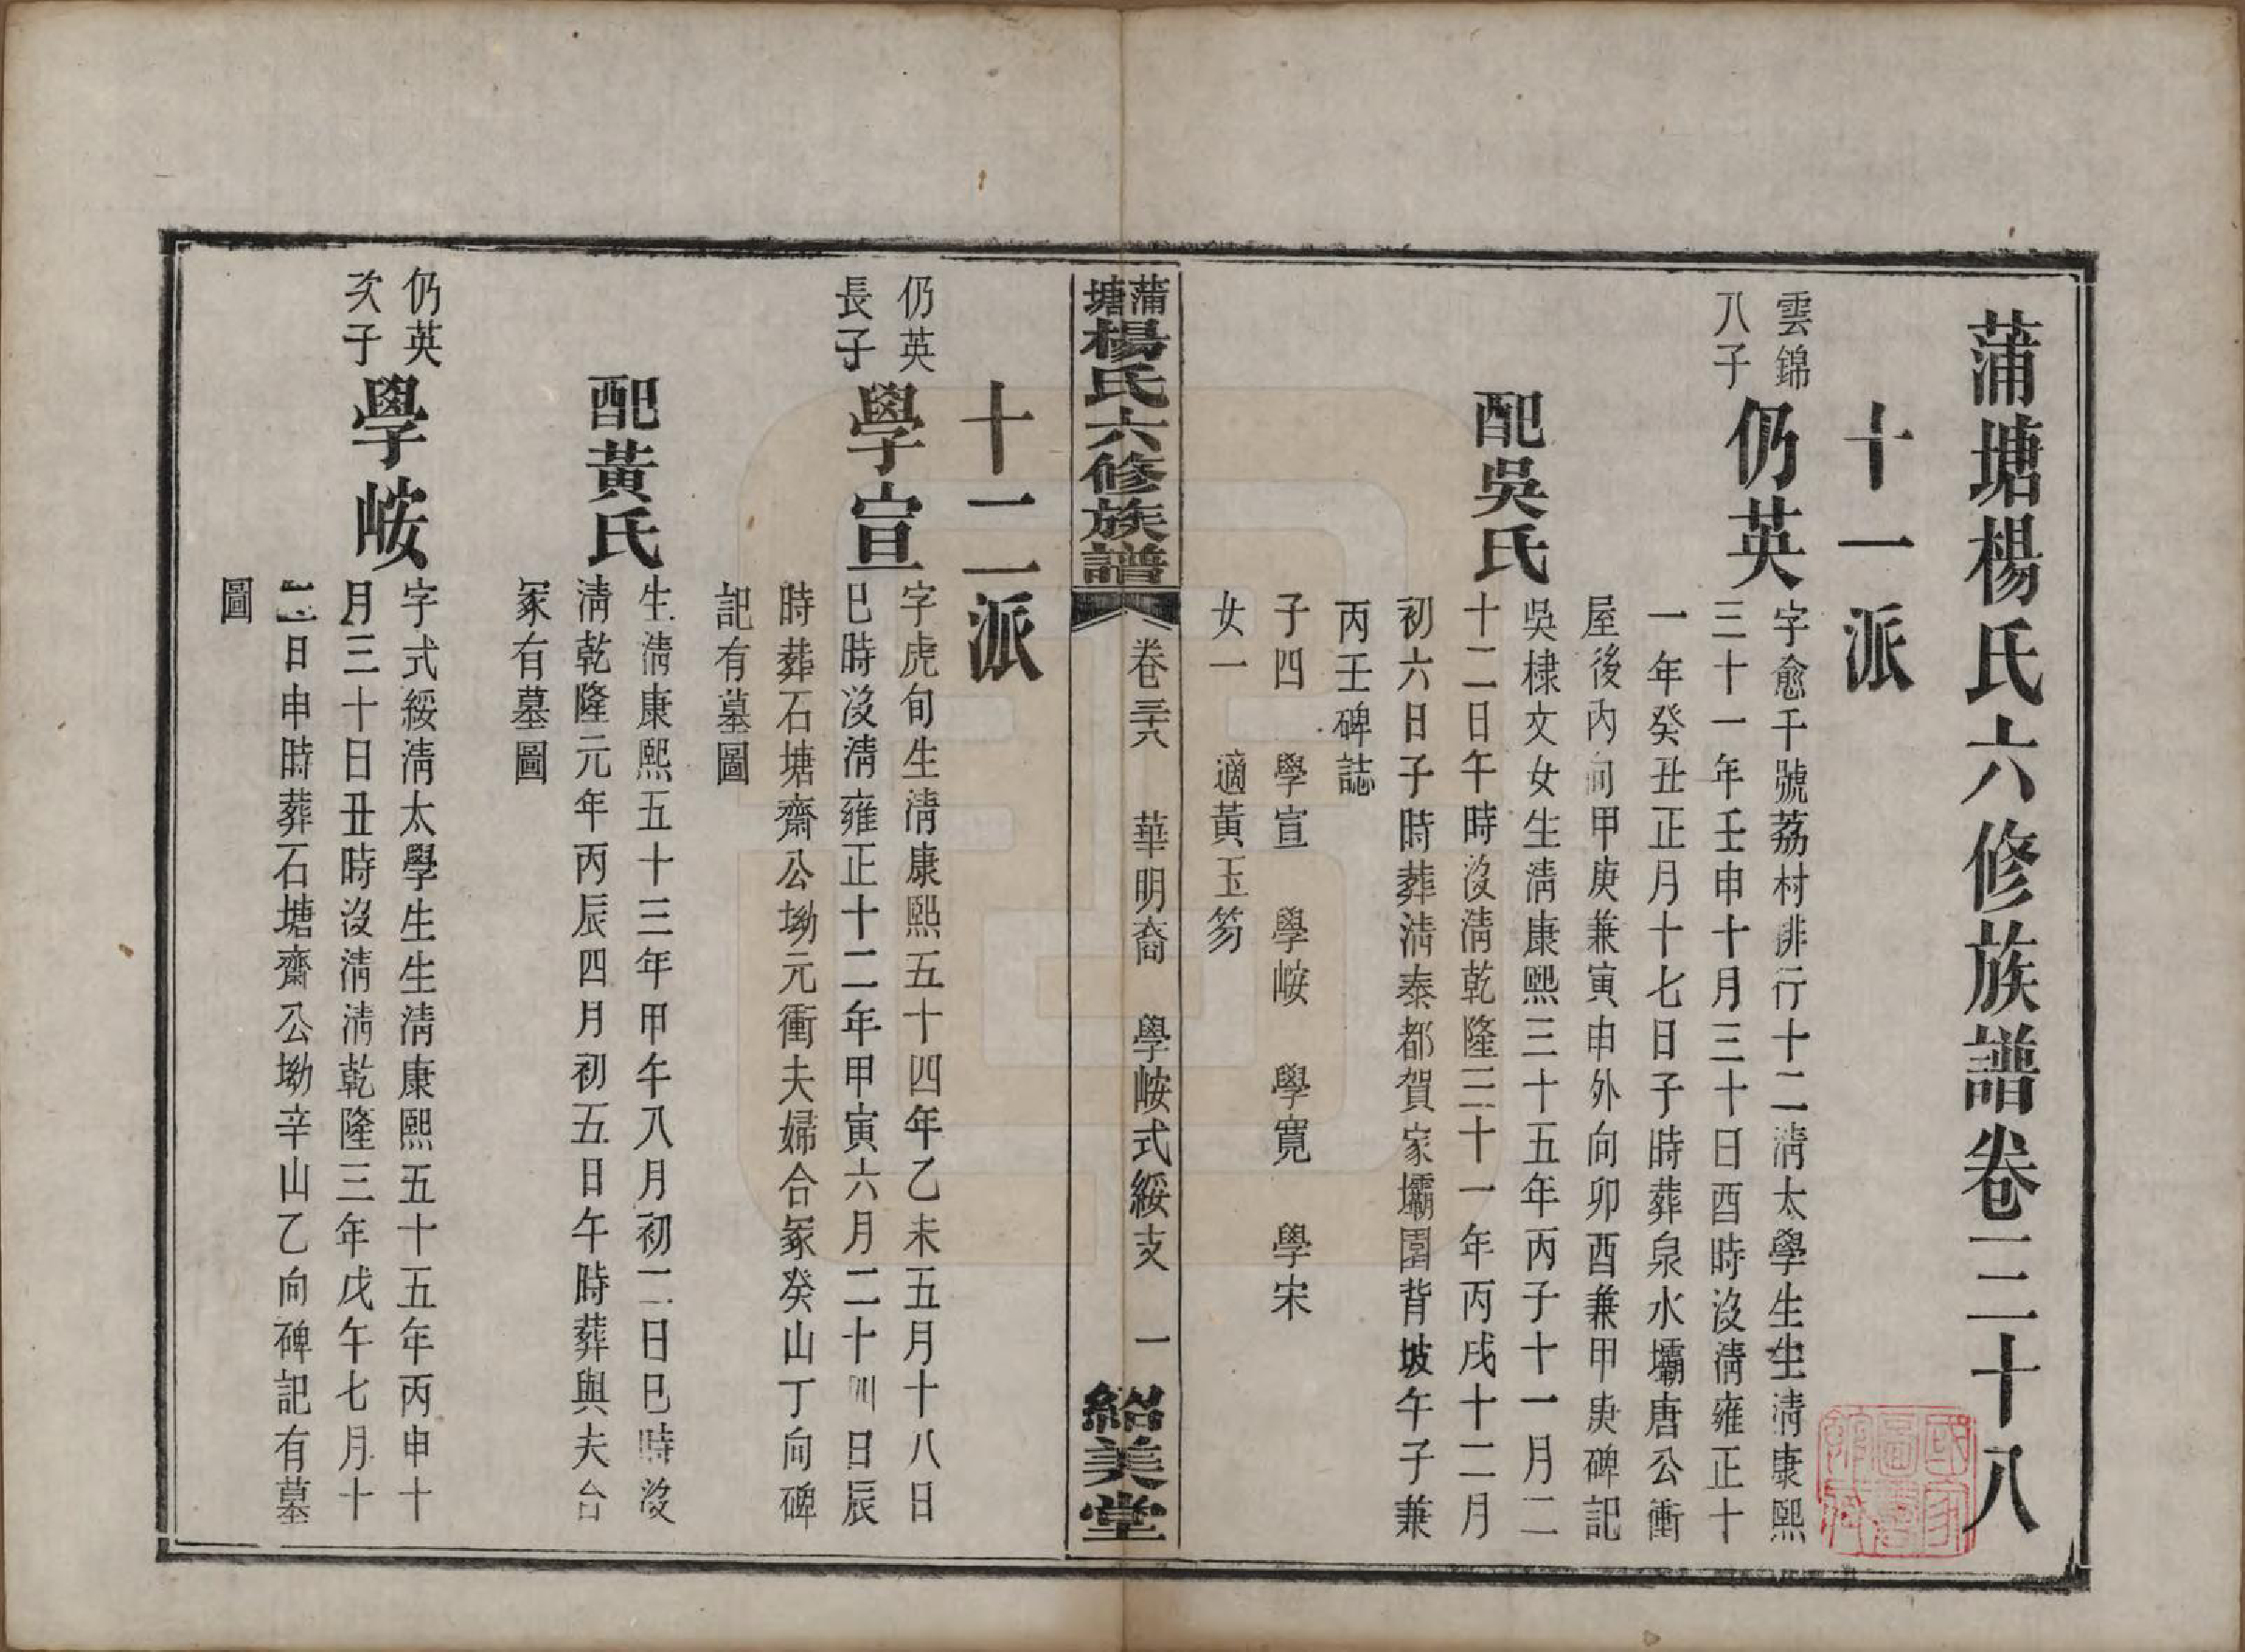 蒲塘楊氏六修族譜卷三十八
十一派
雲錦
八子
仍英
字愈千號荔村排行十二清太學生生清康熙
三十一年壬申十月三十日酉時沒清雍正十
一年癸丑正月十七日子時葬泉水壩唐公衝
屋後內向甲庚兼寅申外向卯酉兼甲庚碑記
配吳氏
吳棣文女生清康熙三十五年丙子十一月二
十二日午時沒清乾隆三十一年丙戌十二月
初六日子時葬清泰都賀家壩園背坡午子兼
丙壬碑誌
子四 學宣 學峖 學寬 學宋
女一 適黃玉笏
蒲塘楊氏六修族譜 卷三十八 華明裔 學峖式綏支 一 紹美堂
十二派
仍英
長子
學宣
字虎旬生清康熙五十四年乙未五月十八日
巳時沒清雍正十二年甲寅六月二十四日辰
時葬石塘齋公坳元衝夫婦合冢癸山丁向碑
記有墓圖
配黃氏
生清康熙五十三年甲午八月初二日巳時沒
清乾隆元年丙辰四月初五日午時葬與夫合
冢有墓圖
仍英
次子
學峖
字式綏清太學生生清康熙五十五年丙申十
月三十日丑時沒清乾隆三年戊午七月十
二日申時葬石塘齋公坳辛山乙向碑記有墓
圖
國家圖書館藏